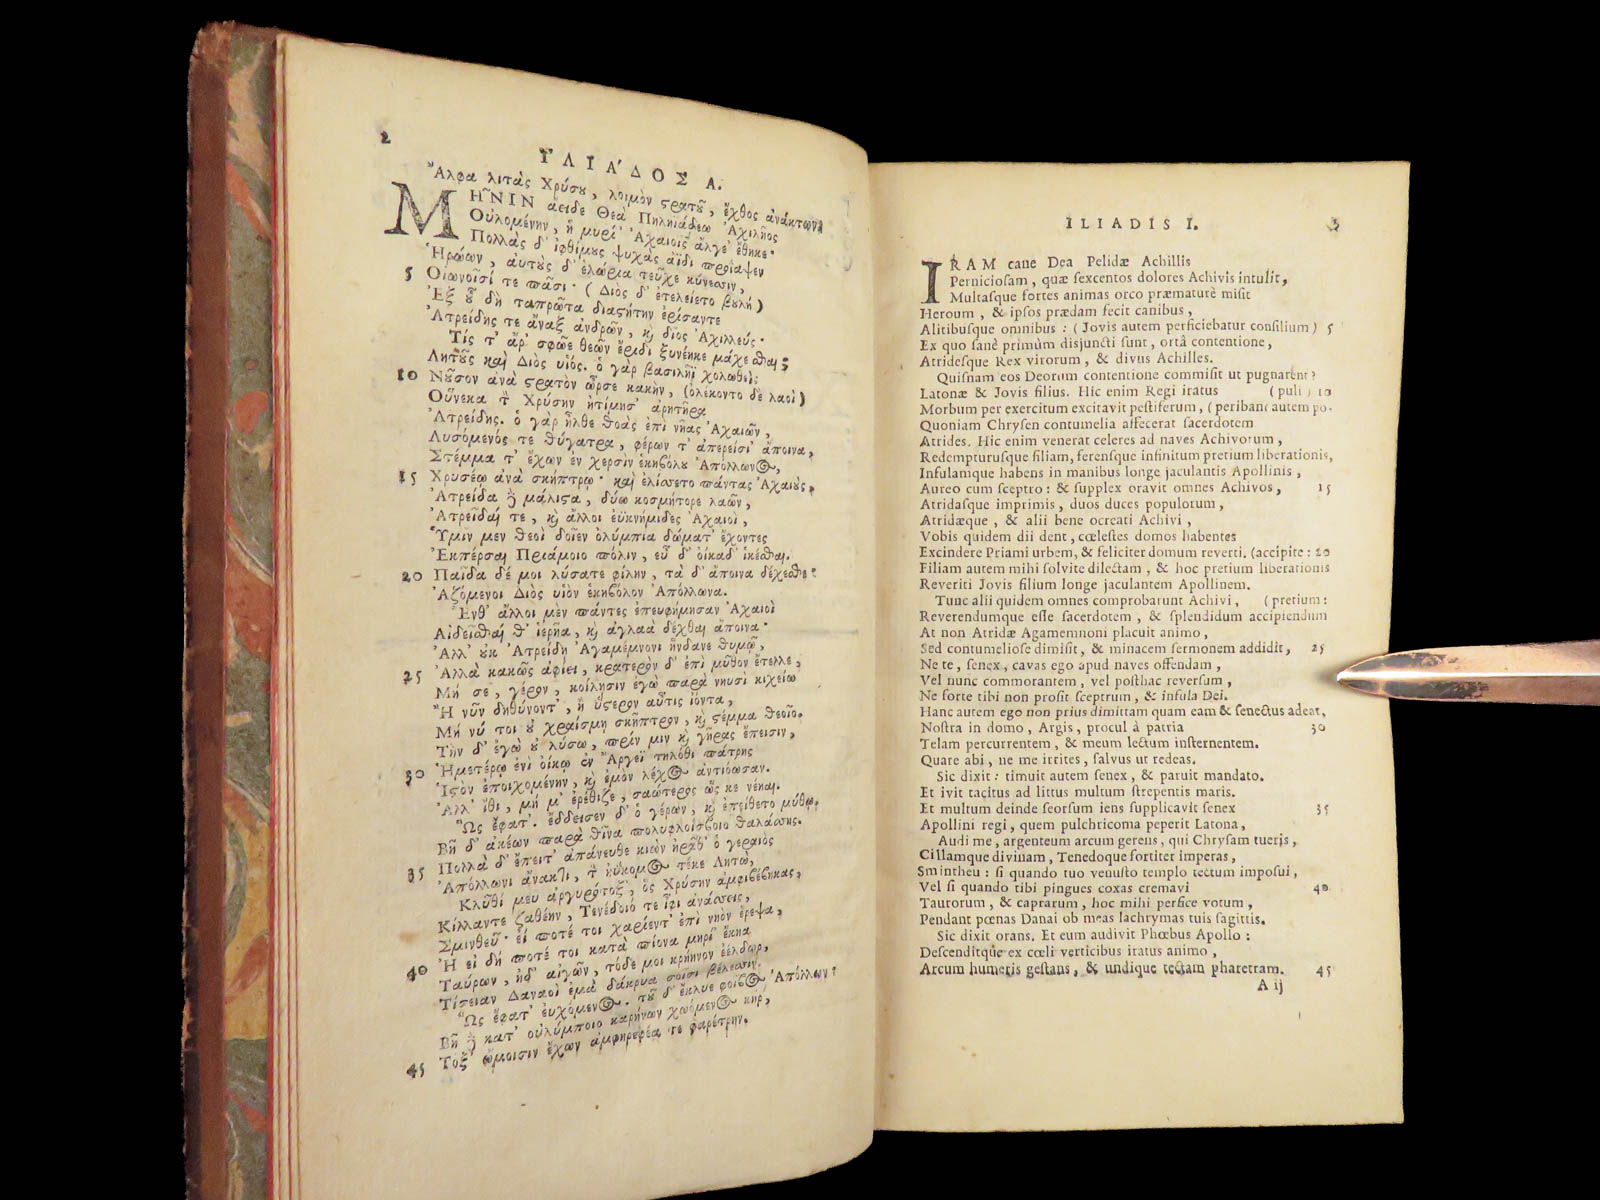 2
ἸΛΙΆΔΟΣ Α.
Ἄλφα λιτὰς Χρύσου, λοιμὸν στρατοῦ, ἔχθος ἀνάκτων.
ΜΗ͂ΝΙΝ ἄειδε Θεὰ Πηληϊάδεω Ἀχιλῆος
Οὐλομένην, ἣ μυρί' Ἀχαιοῖς ἄλγε' ἔθηκε·
Πολλὰς δ' ἰφθίμους ψυχὰς ἄϊδι προΐαψεν
Ἡρώων, αὐτοὺς δ' ἑλώρια τεῦχε κύνεσσιν,
5 Οἰωνοῖσί τε πᾶσι· (Διὸς δ' ἐτελείετο βουλή)
Ἐξ οὗ δὴ ταπρῶτα διαστήτην ἐρίσαντε
Ἀτρείδης τε ἄναξ ἀνδρῶν, καὶ δῖος Ἀχιλλεύς·
Τίς τ' ἄρ' σφῶε θεῶν ἔριδι ξυνέηκε μάχεσθαι;
Λητοῦς καὶ Διὸς υἱός. ὁ γὰρ βασιλῆϊ χολωθεὶς
10 Νοῦσον ἀνὰ στρατὸν ὦρσε κακὴν, (ὀλέκοντο δὲ λαοὶ)
Οὕνεκα τὸν Χρύσην ἠτίμησ' ἀρητῆρα
Ἀτρείδης. ὁ γὰρ ἦλθε θοὰς ἐπὶ νῆας Ἀχαιῶν,
Λυσόμενός τε θύγατρα, φέρων τ' ἀπερείσι' ἄποινα,
Στέμμα τ' ἔχων ἐν χερσὶν ἑκηβόλου Ἀπόλλωνος,
15 Χρυσέῳ ἀνὰ σκήπτρῳ· καὶ ἐλίσσετο πάντας Ἀχαιοὺς,
Ἀτρείδα δὲ μάλιστα, δύω κοσμήτορε λαῶν,
Ἀτρεῖδαί τε, καὶ ἄλλοι ἐϋκνήμιδες Ἀχαιοὶ,
Ὑμῖν μεν θεοὶ δοῖεν ὀλύμπια δώματ' ἔχοντες
Ἐκπέρσαι Πριάμοιο πόλιν, εὖ δ' οἴκαδ' ἱκέσθαι.
20 Παῖδα δέ μοι λύσατε φίλην, τὰ δ' ἄποινα δέχεσθε·
Ἁζόμενοι Διὸς υἱὸν ἑκηβόλον Ἀπόλλωνα.
Ἔνθ' ἄλλοι μὲν πάντες ἐπευφήμησαν Ἀχαιοὶ
Αἰδεῖσθαι θ' ἱερῆα, καὶ ἀγλαὰ δέχθαι ἄποινα·
Ἀλλ' οὐκ Ἀτρείδῃ Ἀγαμέμνονι ἥνδανε θυμῷ,
25 Ἀλλὰ κακῶς ἀφίει, κρατερὸν δ' ἐπὶ μῦθον ἔτελλε,
Μή σε, γέρον, κοίλῃσιν ἐγὼ παρὰ νηυσὶ κιχείω
Ἢ νῦν δηθύνοντ', ἢ ὕστερον αὖτις ἰόντα,
Μή νύ τοι οὐ χραίσμῃ σκῆπτρον, καὶ στέμμα θεοῖο.
Τὴν δ' ἐγὼ οὐ λύσω, πρίν μιν καὶ γῆρας ἔπεισιν,
30 Ἡμετέρῳ ἐνὶ οἴκῳ ἐν Ἄργεϊ τηλόθι πάτρης
Ἱστὸν ἐποιχομένην, καὶ ἐμὸν λέχος ἀντιόωσαν.
Ἀλλ' ἴθι, μή μ' ἐρέθιζε, σαώτερος ὥς κε νέηαι.
Ὣς ἔφατ'. ἔδδεισεν δ' ὁ γέρων, καὶ ἐπείθετο μύθῳ.
Βῆ δ' ἀκέων παρὰ θῖνα πολυφλοίσβοιο θαλάσσης.
35 Πολλὰ δ' ἔπειτ' ἀπάνευθε κιὼν ἠρᾶθ' ὁ γεραιὸς
Ἀπόλλωνι ἄνακτι, τὸν ἠΰκομος τέκε Λητὼ,
Κλῦθί μευ ἀργυρότοξ', ὃς Χρύσην ἀμφιβέβηκας,
Κίλλαντε ζαθέην, Τενέδοιό τε ἶφι ἀνάσσεις,
Σμινθεῦ· εἴ ποτέ τοι χαρίεντ' ἐπὶ νηὸν ἔρεψα,
40 Ἢ εἰ δή ποτέ τοι κατὰ πίονα μηρί' ἔκηα
Ταύρων, ἠδ' αἰγῶν, τόδε μοι κρήηνον ἐέλδωρ,
Τίσειαν Δαναοὶ ἐμὰ δάκρυα σοῖσι βέλεσσιν.
Ὣς ἔφατ' εὐχόμενος. τοῦ δ' ἔκλυε φοῖβος Ἀπόλλων·
Βῆ δὲ κατ' οὐλύμποιο καρήνων χωόμενος κῆρ,
45 Τόξ' ὤμοισιν ἔχων ἀμφηρεφέα τε φαρέτρην.
ILIADIS I. 3
IRAM cane Dea Pelidæ Achillis
Perniciosam, quæ sexcentos dolores Achivis intulit,
Multasque fortes animas orco præmaturè misit
Heroum, & ipsos prædam fecit canibus,
Alitibusque omnibus : (Jovis autem perficiebatur consilium) 5
Ex quo sanè primùm disjuncti sunt, ortâ contentione,
Atridesque Rex virorum, & divus Achilles.
Quisnam eos Deorum contentione commisit ut pugnarent?
Latonæ & Jovis filius. Hic enim Regi iratus (puli) 10
Morbum per exercitum excitavit pestiferum, (peribant autem po-
Quoniam Chrysen contumelia affecerat sacerdotem
Atrides. Hic enim venerat celeres ad naves Achivorum,
Redempturusque filiam, ferensque infinitum pretium liberationis,
Insulamque habens in manibus longe jaculantis Apollinis,
Aureo cum sceptro : & supplex oravit omnes Achivos, 15
Atridasque imprimis, duos duces populorum,
Atridæque, & alii bene ocreati Achivi,
Vobis quidem dii dent, cœlestes domos habentes
Excindere Priami urbem, & feliciter domum reverti. (accipite : 20
Filiam autem mihi solvite dilectam, & hoc pretium liberationis
Reveriti Jovis filium longe jaculantem Apollinem.
Tunc alii quidem omnes comprobarunt Achivi, (pretium :
Reverendumque esse sacerdotem, & splendidum accipiendum
At non Atridæ Agamemnoni placuit animo,
Sed contumeliose dimisit, & minacem sermonem addidit, 25
Ne te, senex, cavas ego apud naves offendam,
Vel nunc commorantem, vel posthac reversum,
Ne forte tibi non prosit sceptrum, & insula Dei.
Hanc autem ego non prius dimittam quam eam & senectus adeat,
Nostra in domo, Argis, procul à patria 30
Telam percurrentem, & meum lectum insternentem.
Quare abi, ne me irrites, salvus ut redeas.
Sic dixit : timuit autem senex, & paruit mandato.
Et ivit tacitus ad littus multum strepentis maris.
Et multum deinde seorsum iens supplicavit senex 35
Apollini regi, quem pulchricoma peperit Latona,
Audi me, argenteum arcum gerens, qui Chrysam tueris,
Cillamque divinam, Tenedoque fortiter imperas,
Smintheu : si quando tuo venusto templo tectum imposui,
Vel si quando tibi pingues coxas cremavi 40
Taurorum, & caprarum, hoc mihi perfice votum,
Pendant pœnas Danai ob meas lachrymas tuis sagittis.
Sic dixit orans. Et eum audivit Phœbus Apollo :
Descenditque ex cœli verticibus iratus animo,
Arcum humeris gestans, & undique tectam pharetram. 45
A ij